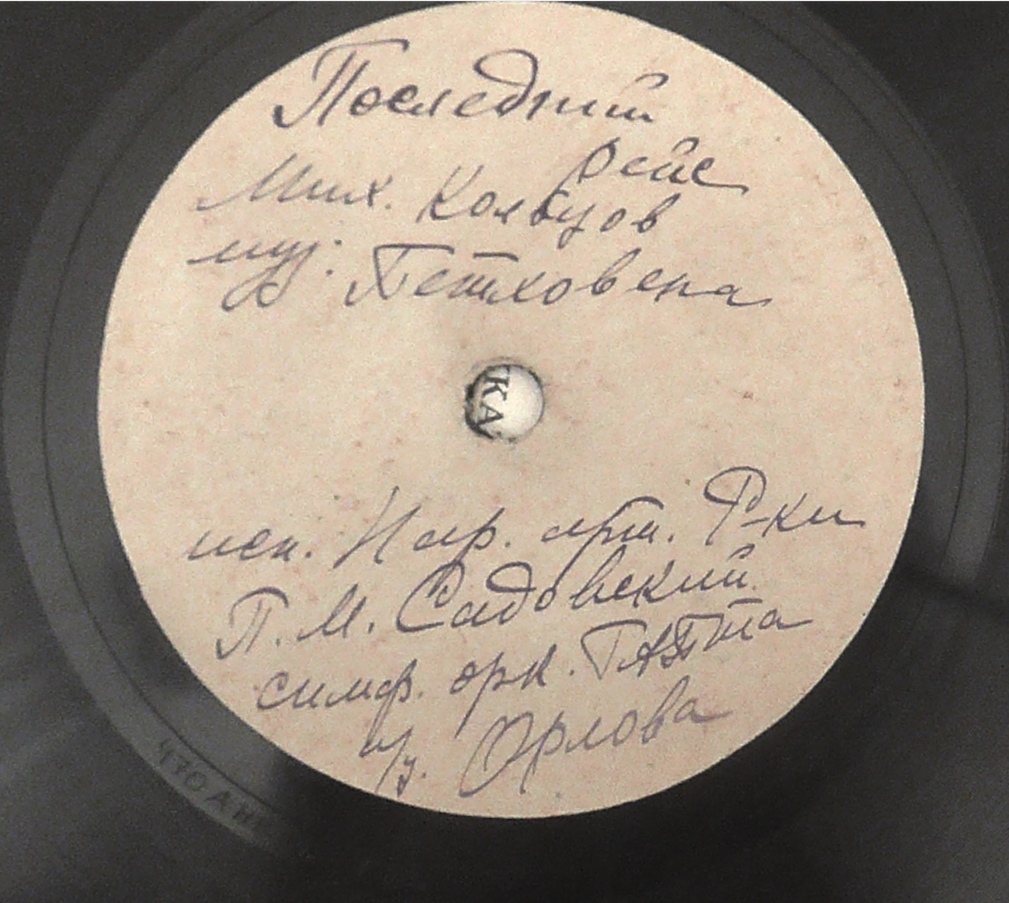 Последний
рейс
Мих. Кольцов
муз. Бетховена
КА
исп. Нар. арт. Р-ки
П. М. Садовский
симф. орк. ГАБТта
п/у. Орлова